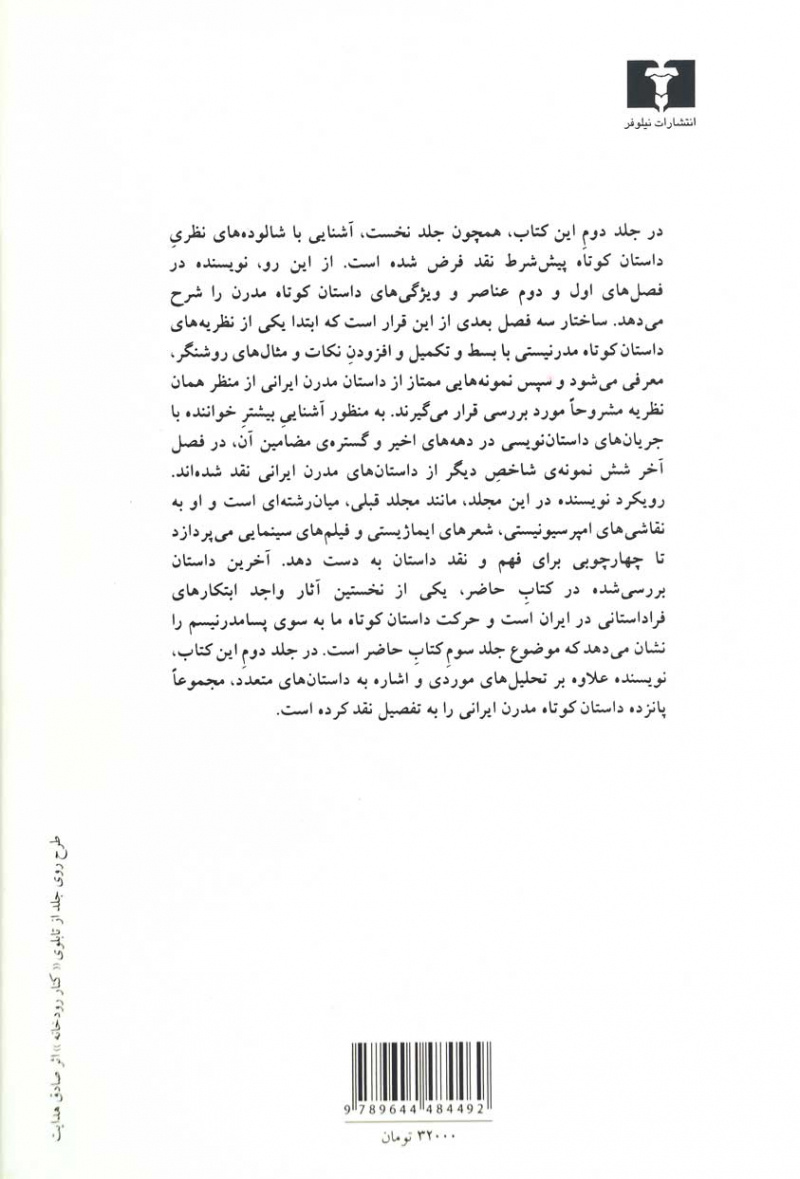 انتشارات نیلوفر
در جلد دومِ این کتاب، همچون جلد نخست، آشنایی با شالوده‌های نظریِ
داستان کوتاه پیش‌شرط نقد فرض شده است. از این رو، نویسنده در
فصل‌های اول و دوم عناصر و ویژگی‌های داستان کوتاه مدرن را شرح
می‌دهد. ساختار سه فصل بعدی از این قرار است که ابتدا یکی از نظریه‌های
داستان کوتاه مدرنیستی با بسط و تکمیل و افزودنِ نکات و مثال‌های روشنگر،
معرفی می‌شود و سپس نمونه‌هایی ممتاز از داستان مدرن ایرانی از منظر همان
نظریه مشروحاً مورد بررسی قرار می‌گیرند. به منظور آشناییِ بیشترِ خواننده با
جریان‌های داستان‌نویسی در دهه‌های اخیر و گستره‌ی مضامین آن، در فصل
آخر شش نمونه‌ی شاخصِ دیگر از داستان‌های مدرن ایرانی نقد شده‌اند.
رویکرد نویسنده در این مجلد، مانند مجلد قبلی، میان‌رشته‌ای است و او به
نقاشی‌های امپرسیونیستی، شعرهای ایماژیستی و فیلم‌های سینمایی می‌پردازد
تا چهارچوبی برای فهم و نقد داستان به دست دهد. آخرین داستان
بررسی‌شده در کتابِ حاضر، یکی از نخستین آثار واجد ابتکارهای
فراداستانی در ایران است و حرکت داستان کوتاه ما به سوی پسامدرنیسم را
نشان می‌دهد که موضوع جلد سومِ کتابِ حاضر است. در جلد دومِ این کتاب،
نویسنده علاوه بر تحلیل‌های موردی و اشاره به داستان‌های متعدد، مجموعاً
پانزده داستان کوتاه مدرن ایرانی را به تفصیل نقد کرده است.
طرح روی جلد از تابلوی «کنار رودخانه» اثر صادق هدایت
9 789644 484492
۳۲۰۰۰ تومان